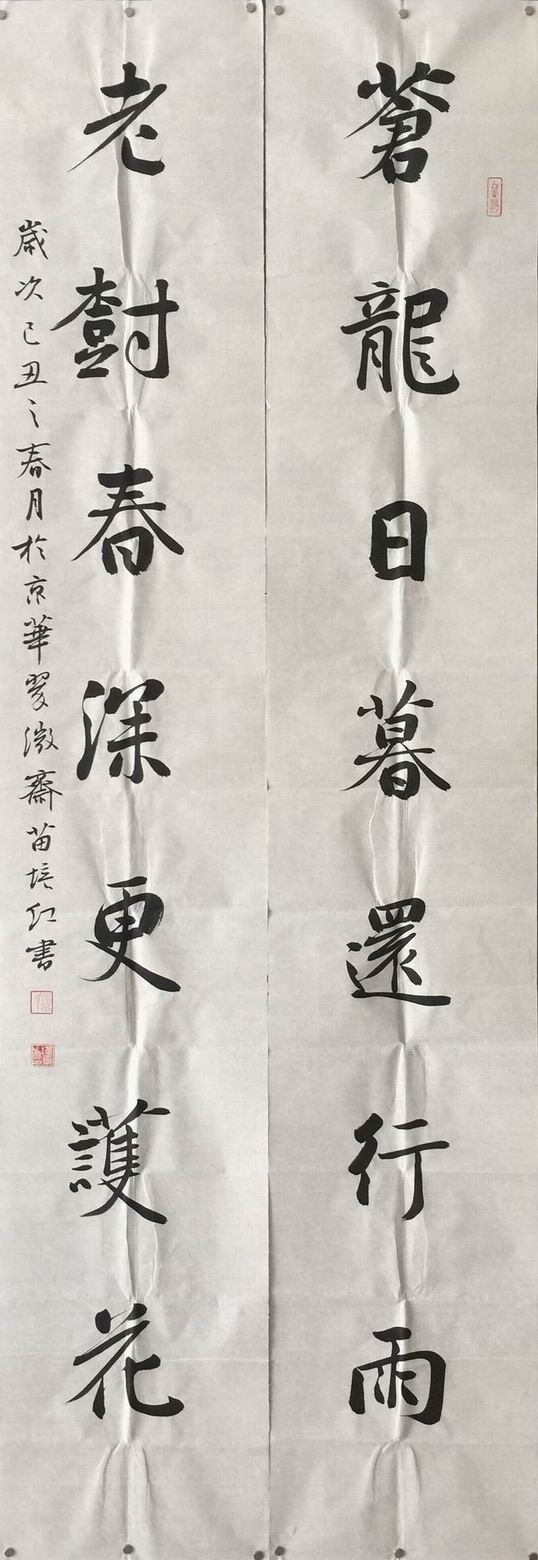 蒼龍日暮還行雨
老樹春深更護花
歲次己丑之春月於京華翠微齋苗培红書